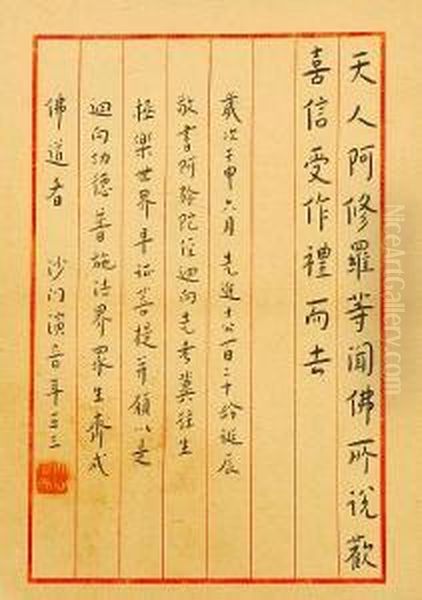 天人阿修羅等聞佛所說歡
喜信受作禮而去
歲次壬申六月先進士公百二十齡誕辰
敬書阿彌陀經迴向先考冀往生
極樂世界早證菩提并願以是
迴向功德普施法界眾生齊成
佛道者 沙門演音年五十三
NiceArtGallery.com